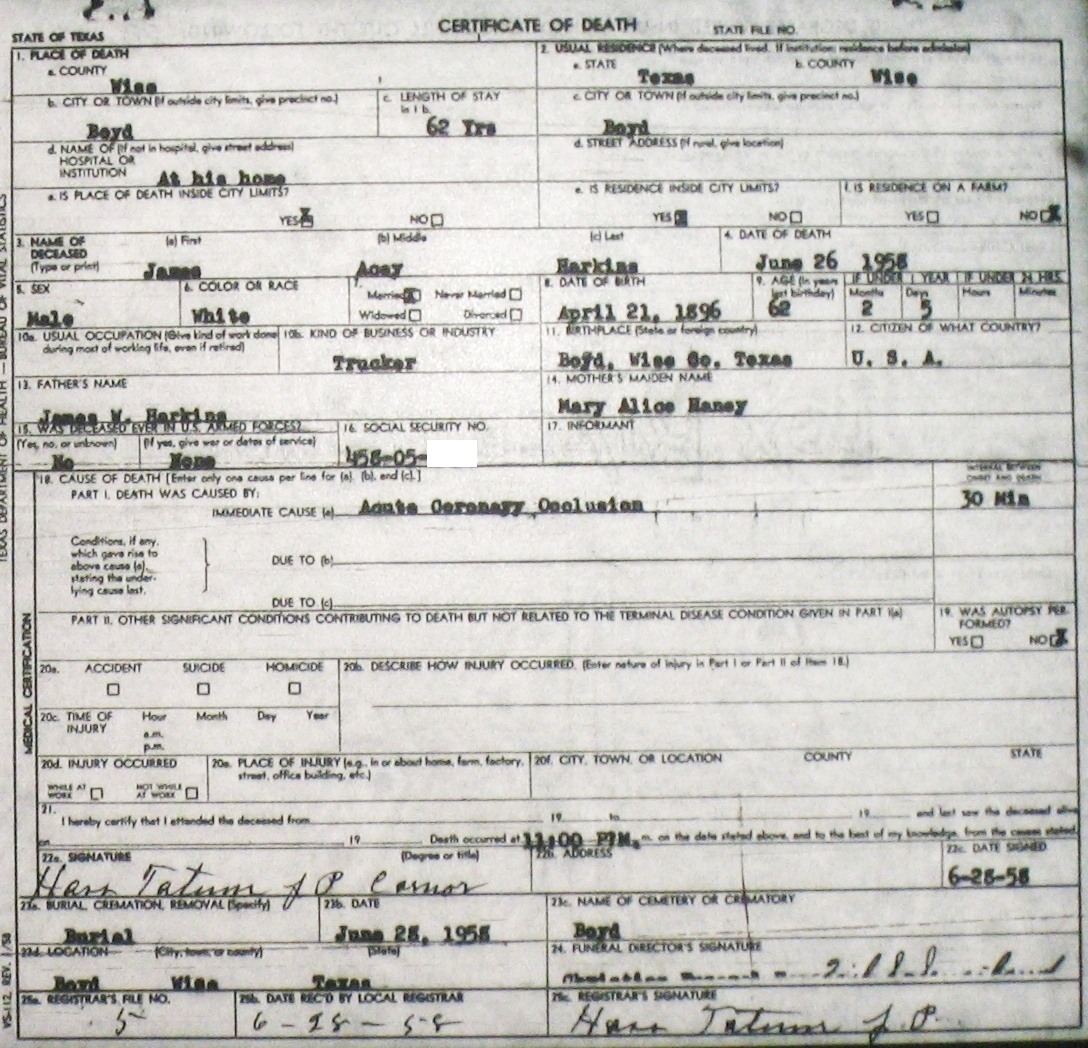 CERTIFICATE OF DEATH
STATE OF TEXAS STATE FILE NO.
1. PLACE OF DEATH
a. COUNTY
Wise
2. USUAL RESIDENCE (Where deceased lived. If institution: residence before admission)
a. STATE b. COUNTY
Texas Wise
b. CITY OR TOWN (If outside city limits, give precinct no.)
Boyd
c. LENGTH OF STAY
in 1 b.
62 Yrs
c. CITY OR TOWN (If outside city limits, give precinct no.)
Boyd
d. NAME OF (If not in hospital, give street address)
HOSPITAL OR
INSTITUTION At his home
d. STREET ADDRESS (If rural, give location)
e. IS PLACE OF DEATH INSIDE CITY LIMITS?
YES X NO
e. IS RESIDENCE INSIDE CITY LIMITS?
YES NO
f. IS RESIDENCE ON A FARM?
YES NO X
3. NAME OF
DECEASED
(Type or print)
(a) First (b) Middle (c) Last
James Acay Harkins
4. DATE OF DEATH
June 26 1958
5. SEX
Male
6. COLOR OR RACE
White
7.
Married X Never Married
Widowed Divorced
8. DATE OF BIRTH
April 21, 1896
9. AGE (In years
last birthday)
62
IF UNDER 1 YEAR IF UNDER 24 HRS.
Months Days Hours Minutes
2 5
10a. USUAL OCCUPATION (Give kind of work done
during most of working life, even if retired)
10b. KIND OF BUSINESS OR INDUSTRY
Trucker
11. BIRTHPLACE (State or foreign country)
Boyd, Wise Co. Texas
12. CITIZEN OF WHAT COUNTRY?
U. S. A.
13. FATHER'S NAME
James W. Harkins
14. MOTHER'S MAIDEN NAME
Mary Alice Haney
15. WAS DECEASED EVER IN U.S. ARMED FORCES?
(Yes, no, or unknown) (If yes, give war or dates of service)
No None
16. SOCIAL SECURITY NO.
458-05-
17. INFORMANT
18. CAUSE OF DEATH [Enter only one cause per line for (a), (b), and (c).]
INTERVAL BETWEEN
ONSET AND DEATH
PART I. DEATH WAS CAUSED BY:
IMMEDIATE CAUSE (a) Acute Coronary Occlusion 30 Min
Conditions, if any,
which gave rise to
above cause (a),
stating the under-
lying cause last.
DUE TO (b)
DUE TO (c)
PART II. OTHER SIGNIFICANT CONDITIONS CONTRIBUTING TO DEATH BUT NOT RELATED TO THE TERMINAL DISEASE CONDITION GIVEN IN PART I(a)
19. WAS AUTOPSY PER-
FORMED?
YES NO X
20a. ACCIDENT SUICIDE HOMICIDE
20b. DESCRIBE HOW INJURY OCCURRED. (Enter nature of injury in Part I or Part II of Item 18.)
20c. TIME OF
INJURY
Hour Month Day Year
a.m.
p.m.
20d. INJURY OCCURRED
WHILE AT
WORK
NOT WHILE
AT WORK
20e. PLACE OF INJURY (e.g., in or about home, farm, factory,
street, office building, etc.)
20f. CITY, TOWN, OR LOCATION COUNTY STATE
21.
I hereby certify that I attended the deceased from 19 to 19 and last saw the deceased alive
on 19 Death occurred at 11:00 P.M. m. on the date stated above, and to the best of my knowledge, from the causes stated.
22a. SIGNATURE (Degree or title)
Tatum J P
22b. ADDRESS
22c. DATE SIGNED
6-28-58
23a. BURIAL, CREMATION, REMOVAL (Specify)
Burial
23b. DATE
June 28, 1958
23c. NAME OF CEMETERY OR CREMATORY
Boyd
23d. LOCATION (City, town, or county) (State)
Boyd Wise Texas
24. FUNERAL DIRECTOR'S SIGNATURE
25a. REGISTRAR'S FILE NO.
5
25b. DATE REC'D BY LOCAL REGISTRAR
6-28-58
25c. REGISTRAR'S SIGNATURE
Tatum J. P.
MEDICAL CERTIFICATION
TEXAS DEPARTMENT OF HEALTH — BUREAU OF VITAL STATISTICS
VS-112 REV. 1/58